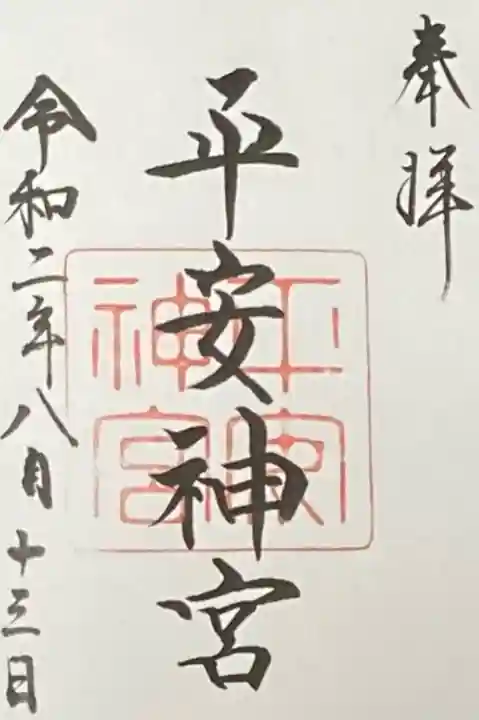 奉拝
平安神宮
平安神宮
令和二年八月十三日